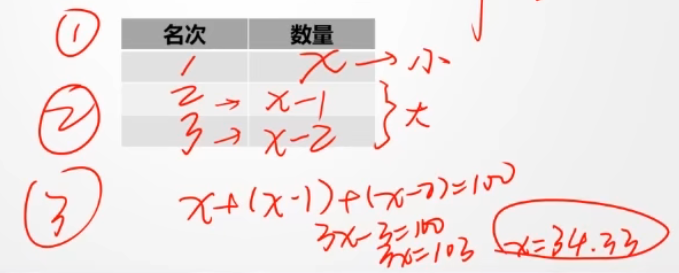 ① 名次 数量
1 x→小
② 2→ x-1
3→ x-2 } 大
③ x+(x-1)+(x-2)=100
3x-3=100
3x=103 x=34.33